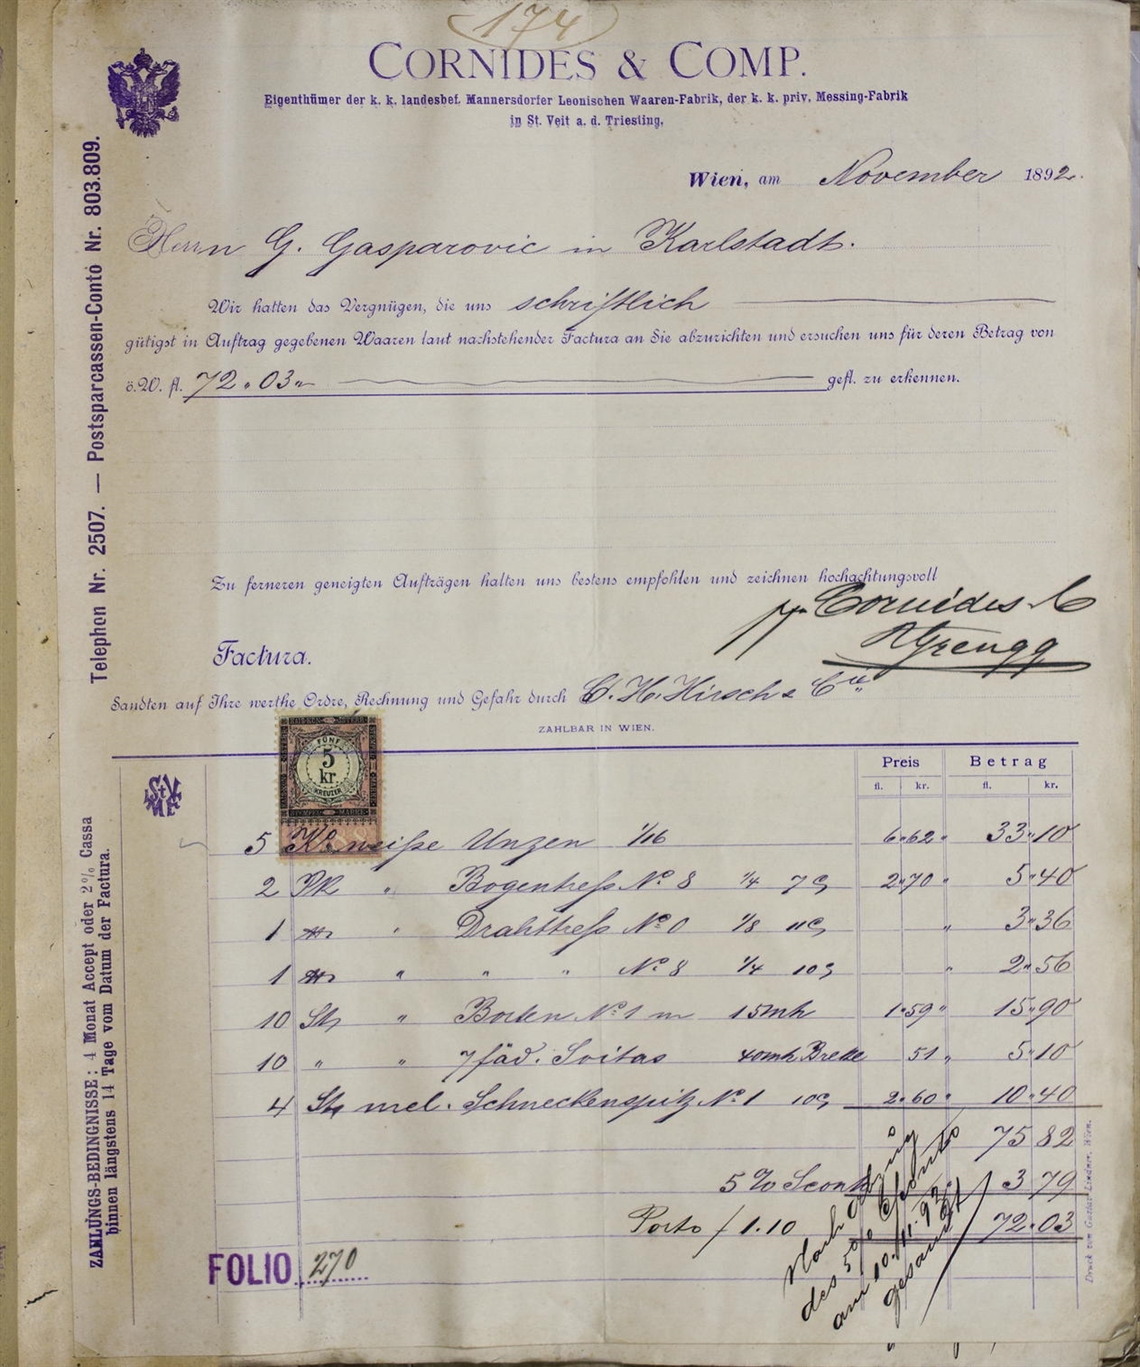 174
CORNIDES & COMP.
Eigenthümer der k. k. landesbef. Mannersdorfer Leonischen Waaren-Fabrik, der k. k. priv. Messing-Fabrik
in St. Veit a. d. Triesting.
Telephon Nr. 2507. — Postsparcassen-Conto Nr. 803.809.
Wien, am November 1892.
Herrn G. Gasparovic in Karlstadt.
Wir hatten das Vergnügen, die uns schriftlich
gütigst in Auftrag gegebenen Waaren laut nachstehender Factura an Sie abzurichten und ersuchen uns für deren Betrag von
ö.W. fl. 72.03 gefl. zu erkennen.
Zu ferneren geneigten Aufträgen halten uns bestens empfohlen und zeichnen hochachtungsvoll
pp. Cornides & C
Factura.
Sandten auf Ihre werthe Ordre, Rechnung und Gefahr durch C. H. Hirsch & Cie
ZAHLBAR IN WIEN.
FÜNF
5
kr.
KREUZER
Preis Betrag
fl. kr. fl. kr.
5 Ko weiße Unzen 1/16 6.62 33.10
2 " Bogentreß No 8 1/4 7 2.70 5.40
1 " Drahttreß No 0 1/8 11 3.36
1 " " " No 8 1/4 10 2.56
10 St " Borten No 1 m 15 1.59 15.90
10 " " 7 fäd. Soitas 40 Breite 51 5.10
4 St mel. Schneckenspitz No 1 10 2.60 10.40
75 82
5 % Sconto 3 79
Porto / 1.10 72.03
Nach Abzug
des 5% Sconto
am 10./11. 92
gesandt
FOLIO 270
ZAHLUNGS-BEDINGNISSE: 4 Monat Accept oder 2% Cassa
binnen längstens 14 Tage vom Datum der Factura.
Druck von Gustav Lindner, Wien.